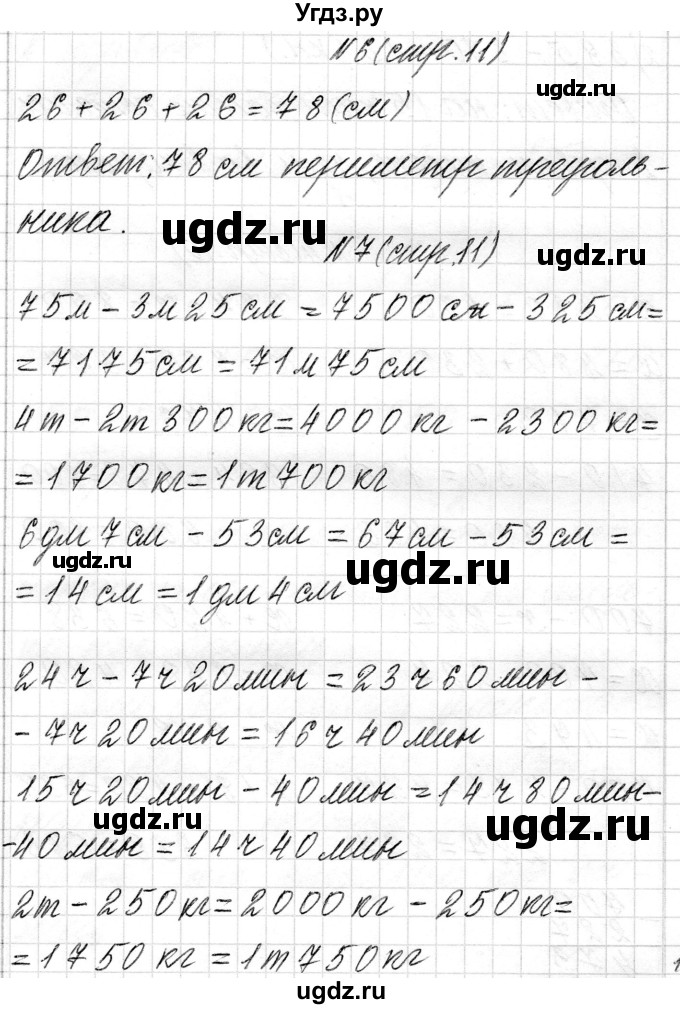 Угдз.ру
N6(стр.11)
ugdz.ru
26+26+26=78(см)
Ответ: 78 см периметр треуголь-
ника.
ugdz.ru
N7(стр.11)
ugdz.ru
75м - 3м 25см = 7500см - 325см=
= 7175см = 71м 75см
4т - 2т 300кг=4000кг - 2300кг=
= 1700кг=1т 700кг
6дм 7см - 53см = 67см - 53см =
ugdz.ru
ugdz.ru
= 14см = 1дм 4см
24ч - 7ч 20мин = 23ч 60мин -
- 7ч 20мин = 16ч 40мин
15ч 20мин - 40мин = 14ч 80мин-
ugdz.ru
ugdz.ru
-40мин = 14ч 40мин
2т - 250кг= 2000кг - 250кг=
= 1750кг = 1т 750кг
1
ugdz.ru